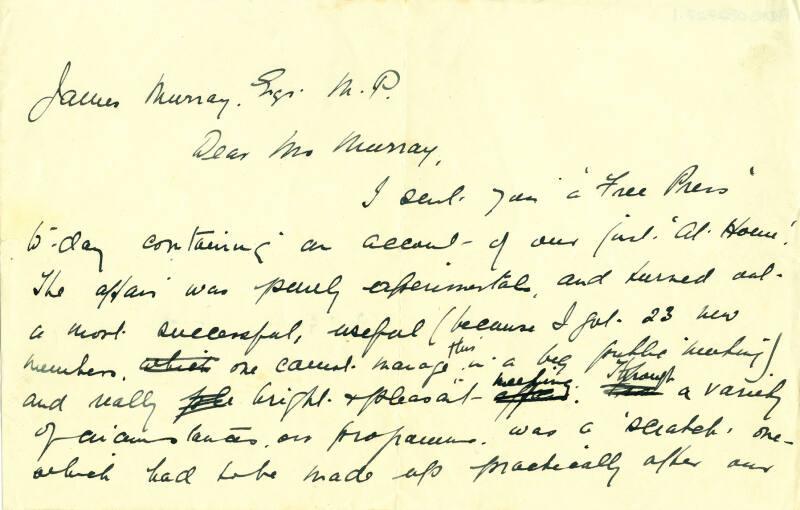 James Murray. Esqr. M.P.
Dear Mr Murray,
I sent you a 'Free Press'
to-day containing an account of our first 'At Home'.
The affair was purely experimental, and turned out
a most successful, useful (because I got 23 new
members, which one cannot manage this in a big public meeting)
and really bright & pleasant meeting. Through a variety
of circumstances, our programme was a 'scratch' one
which had to be made up practically after our